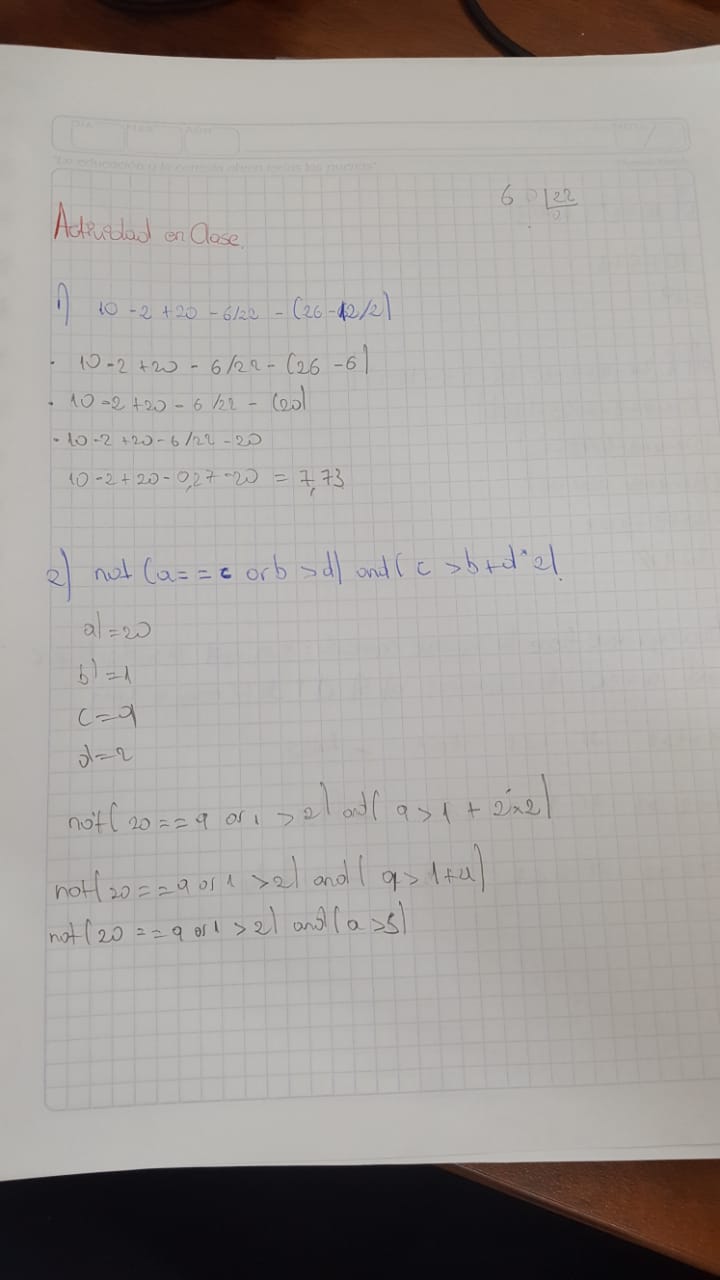 "La educación y la ciencia abren todas las puertas"
6 0 |22
Actividad en Clase.
1) 10 - 2 + 20 - 6/22 - (26 - 12/2)
· 10 - 2 + 20 - 6/22 - (26 - 6)
· 10 - 2 + 20 - 6/22 - (20)
· 10 - 2 + 20 - 6/22 - 20
10 - 2 + 20 - 0,27 - 20 = 7,73
2) not (a == c or b > d) and ( c > b + d * 2).
a) = 20
b) = 1
c = 9
d = 2
not( 20 == 9 or 1 > 2) and( 9 > 1 + 2 * 2)
not( 20 == 9 or 1 > 2) and ( 9 > 1 + 4)
not( 20 == 9 or 1 > 2) and ( 9 > 5)